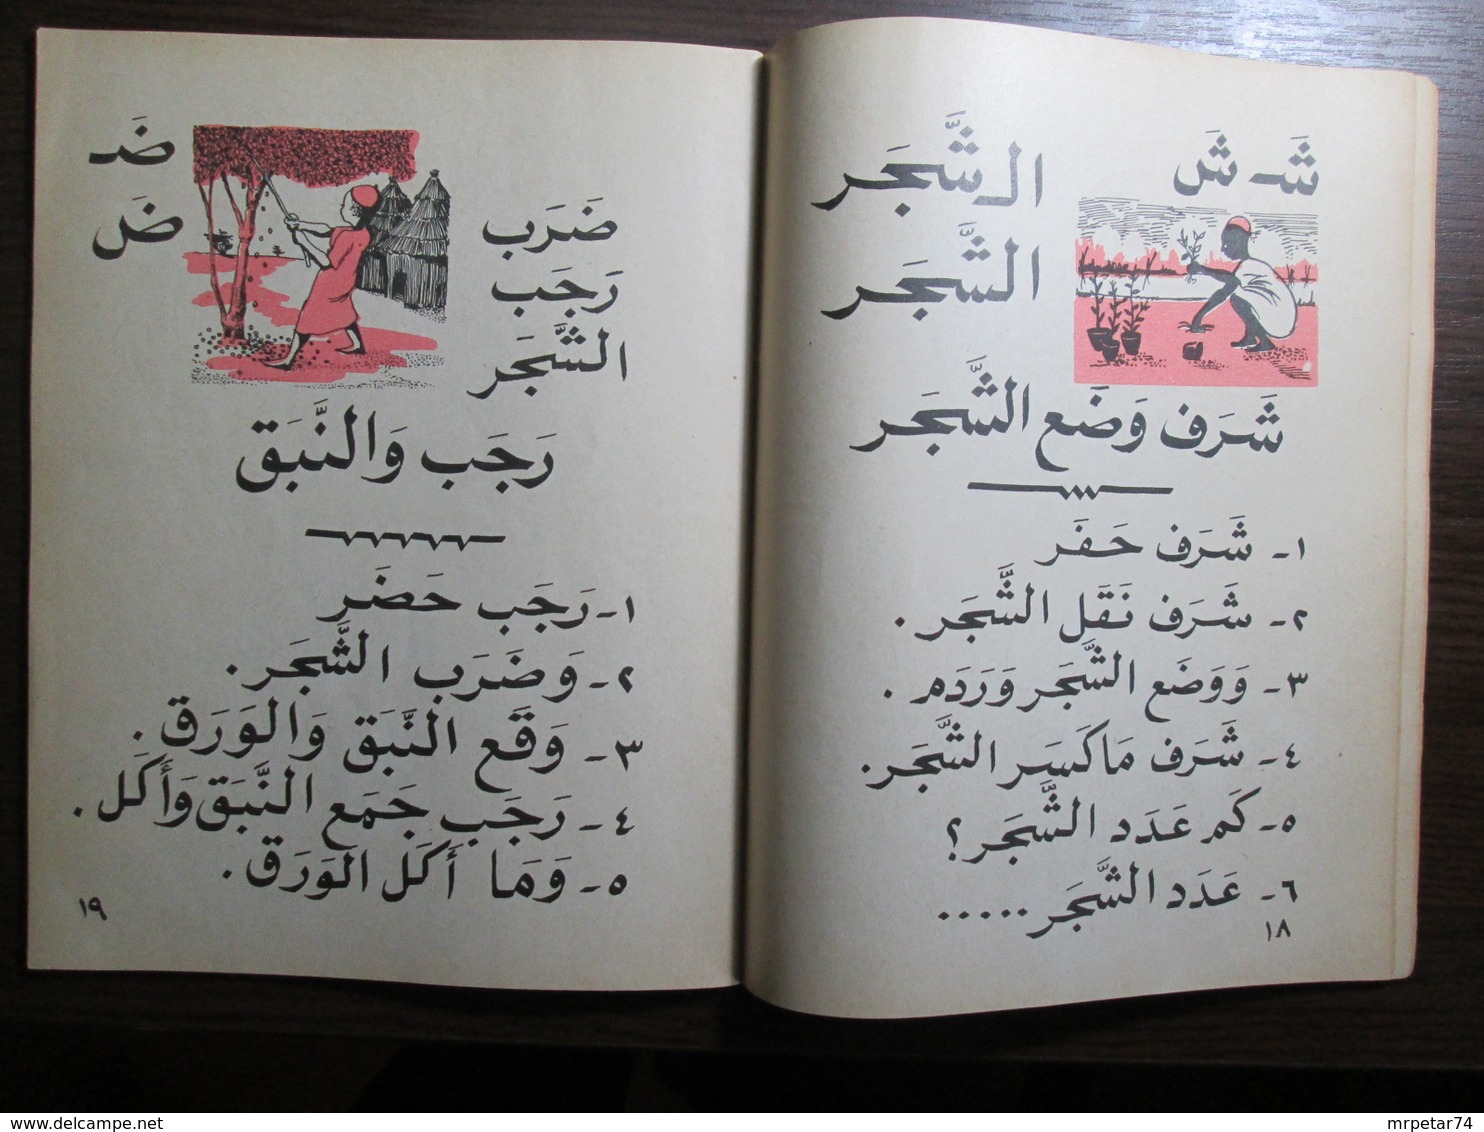 شَـ شَ
الـ شَّجَر
الشَّجَر
شَرَف وَضَع الشَّجَر
١- شَرَف حَفَر
٢- شَرَف نَقَل الشَّجَر.
٣- وَوَضَع الشَّجَر وَرَدَم.
٤- شَرَف مَا كَسَر الشَّجَر.
٥- كَم عَدَد الشَّجَر؟
٦- عَدَد الشَّجَر .....
١٨
ضَـ
ضَ
ضَرَب
رَجَب
الشَّجَر
رَجَب وَالنَّبَق
١- رَجَب حَضَر
٢- وَضَرَب الشَّجَر.
٣- وَقَع النَّبَق وَالوَرَق.
٤- رَجَب جَمَع النَّبَق وَأَكَل.
٥- وَمَا أَكَل الوَرَق.
١٩
delcampe.net
mrpetar74